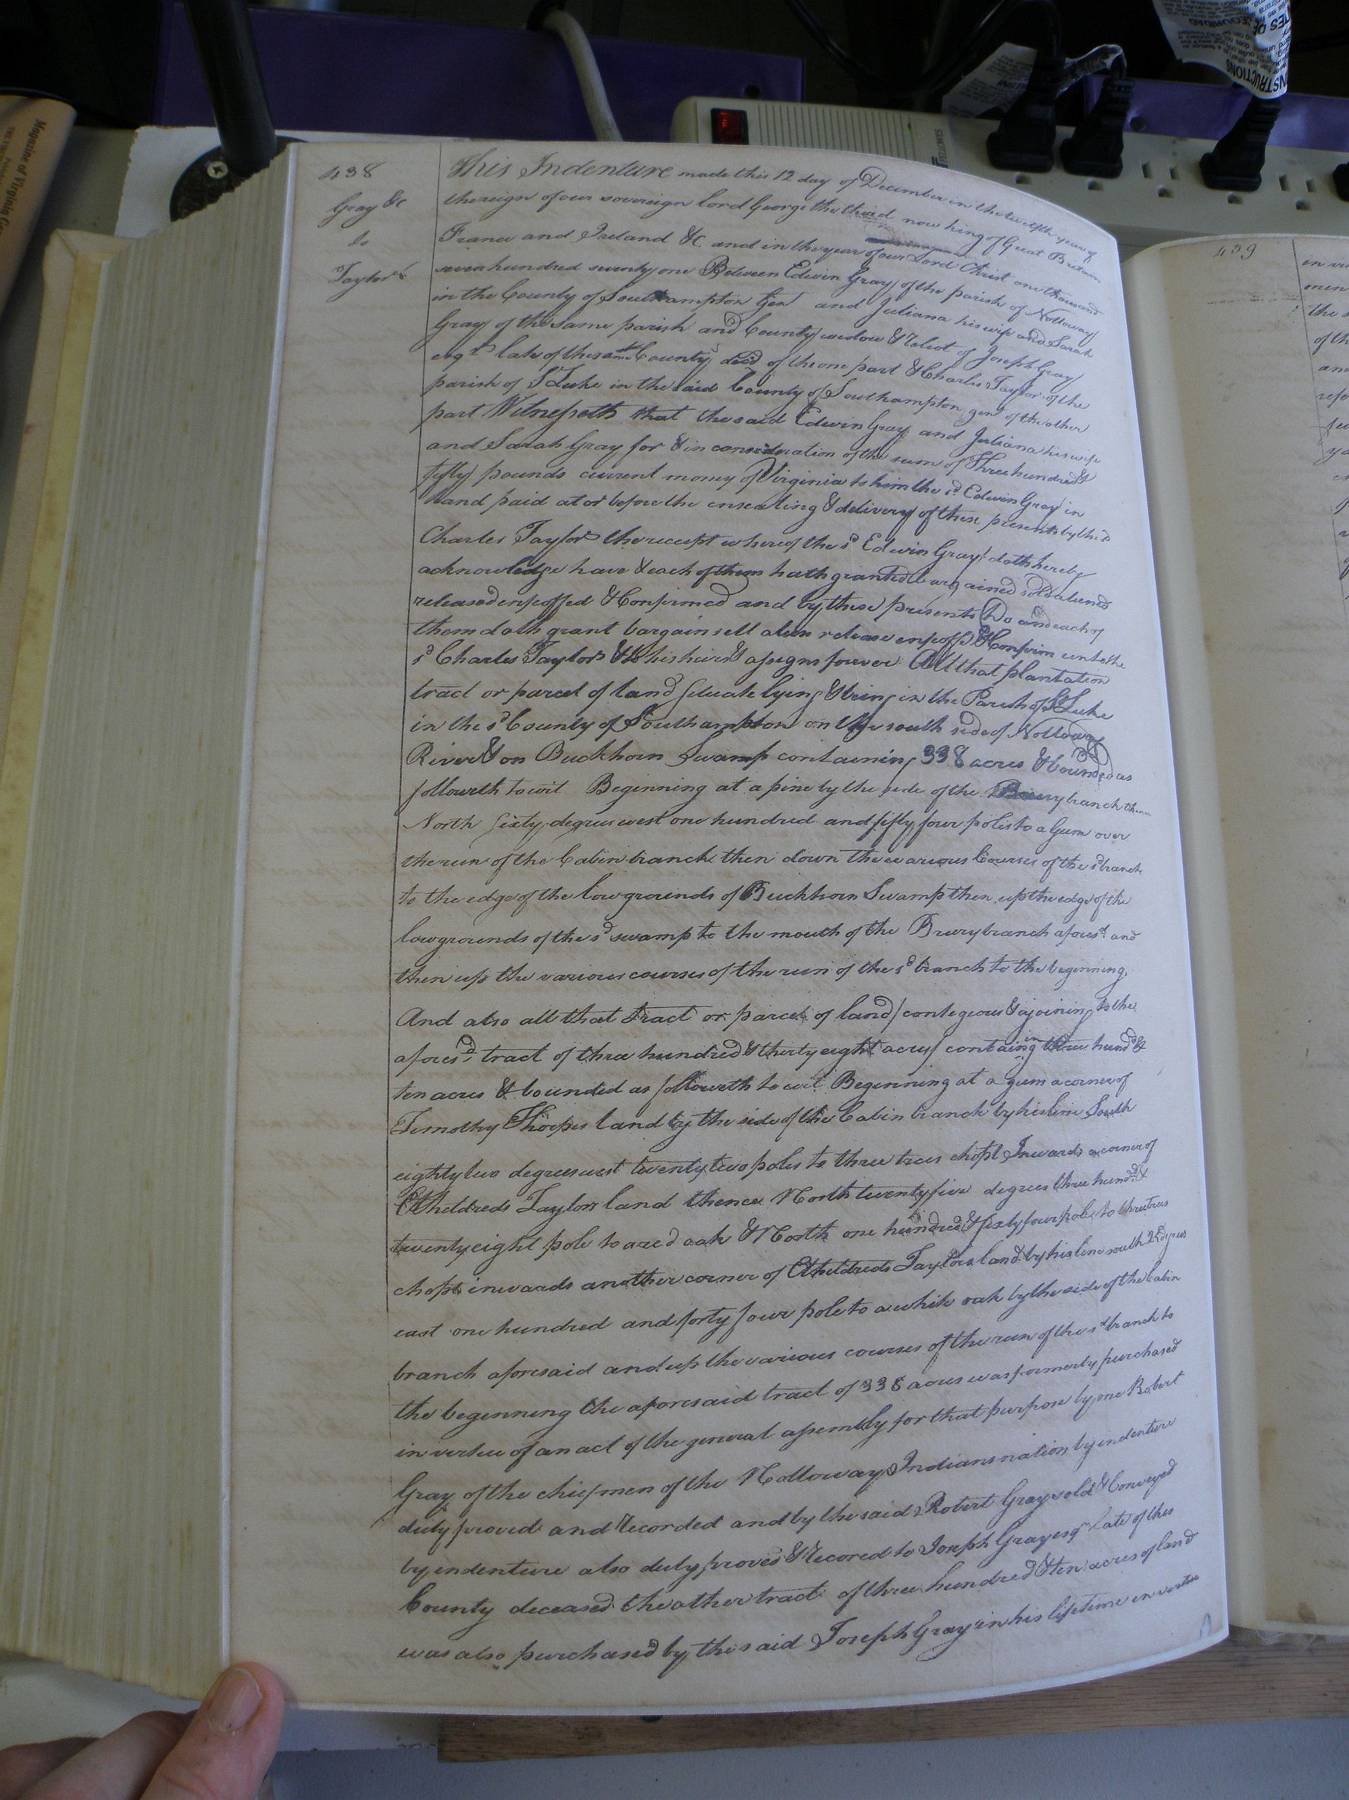 438
Gray &c
to
Taylor
This Indenture made this 12 day of December in the twelfth year of
the reign of our sovereign lord George the third now king of Great Britain
France and Ireland &c and in the year of our Lord Christ one thousand
seven hundred seventy one Between Edwin Gray of the parish of Nottoway
in the County of Southampton Gen and Juliana his wife and Sarah
Gray of the same parish and County widow & relict of Joseph Gray
esqr late of the same County decd of the one part & Charles Taylor of the
parish of St Luke in the said County of Southampton gent of the other
part Witnesseth that the said Edwin Gray and Juliana his wife
and Sarah Gray for & in consideration of the sum of Three hundred &
fifty pounds current money of Virginia to him the sd Edwin Gray in
hand paid at or before the ensealing & delivery of these presents by the sd
Charles Taylor the receipt whereof the sd Edwin Gray doth hereby
acknowledge have & each of them hath granted bargained sold aliened
released enfeoffed & Confirmed and by these presents Do and each of
them doth grant bargain sell alien release enfeoff & Confirm unto the
sd Charles Taylor & to his heirs & assigns forever All that plantation
tract or parcel of land situate lying & being in the Parish of St Luke
in the sd County of Southampton on the south side of Nottoway
River & on Buckhorn Swamp containing 338 acres & bounded as
followeth to wit Beginning at a pine by the side of the Brury branch then
North sixty degrees west one hundred and fifty four poles to a Gum over
the run of the Cabin branch then down the various Courses of the sd branch
to the edge of the low grounds of Buckhorn Swamp then up the edge of the
low grounds of the sd swamp to the mouth of the Brury branch aforesd and
then up the various courses of the run of the sd branch to the beginning.
And also all that tract or parcel of land (contegeous & ajoining to the
aforesd tract of three hundred & therty eight acres) containing three hundd &
ten acres & bounded as followeth to wit Beginning at a gum a corner of
Timothy Thorpes land by the side of the Cabin branch by his line South
eighty two degrees west twenty two poles to three trees chopt Inwards a corner of
Etheldreds Taylors land thence North twenty five degrees three hundd &
twenty eight pole to a red oak & North one hundred & sixty four pole to three trees
chopt inwards another corner of Etheldreds Taylors land by his line south 25 degrees
east one hundred and forty four pole to a white oak by the side of the Cabin
branch aforesaid and up the various courses of the run of the sd branch to
the beginning the aforesaid tract of 338 acres was formerly purchased
in vertue of an act of the general assembly for that purpose by one Robert
Gray of the chief men of the Nottoway Indians nation by indenture
duly proved and recorded and by the said Robert Gray sold & Conveyed
by indenture also duly proved & recored to Joseph Gray esqr late of this
County deceased the other tract of three hundred & ten acres of land
was also purchased by the said Joseph Gray in his lifetime in vertue
439
Magazine of Virginia